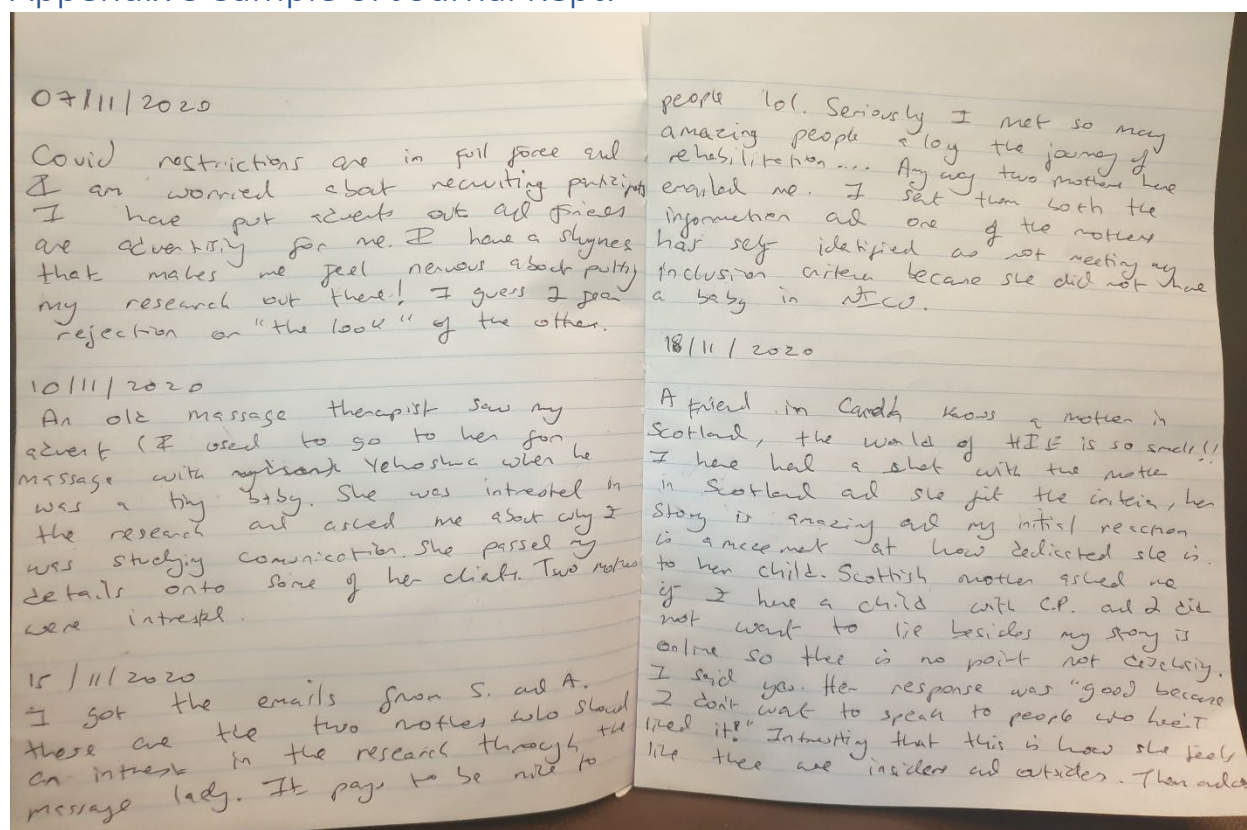 07/11/2020
Covid restrictions are in full force and
I am worried about recruiting
I have put adverts out ad
are advertisiy for me. I have a shynes
that makes me feel nervous about puttig
my research out there! I guess I fear
rejection or "the look" of the other.
10/11/2020
An old massage therapist saw my
advert (I used to go to her for
massage with Yehoshua when he
was a tiny baby. She was intrested in
the research and asked me about why I
was studyig comunication. She passed my
details onto some of her clients. Two
were intrested.
15/11/2020
I got the emails from S. ad A.
these are the two mothers who showd
an intrest in the research through the
massage lady. It pays to be nice to
people lol. Seriously I met so may
amazing people alog the journey of
rehabilitation.... Any way two mothers have
emailed me. I set them both the
information ad one of the mothers
has self idetified as not meeting my
inclusion criteria because she did not have
a baby in
18/11/2020
A friend in knows a mother in
Scotland, the world of HIE is so small!!
I have had a chat with the mother
in Scotland ad she fit the criteia, her
story is amazing and my initial reaction
is at how dedicated she is
to her child. Scottish mother asked me
if I have a child with C.P. and I did
not want to lie besides my story is
online so thee is no point not
I said yes. Her response was "good because
I don't wat to speak to people who
lived it!" Intresting that this is how she feels
like thee are insiders ad outsides. Then